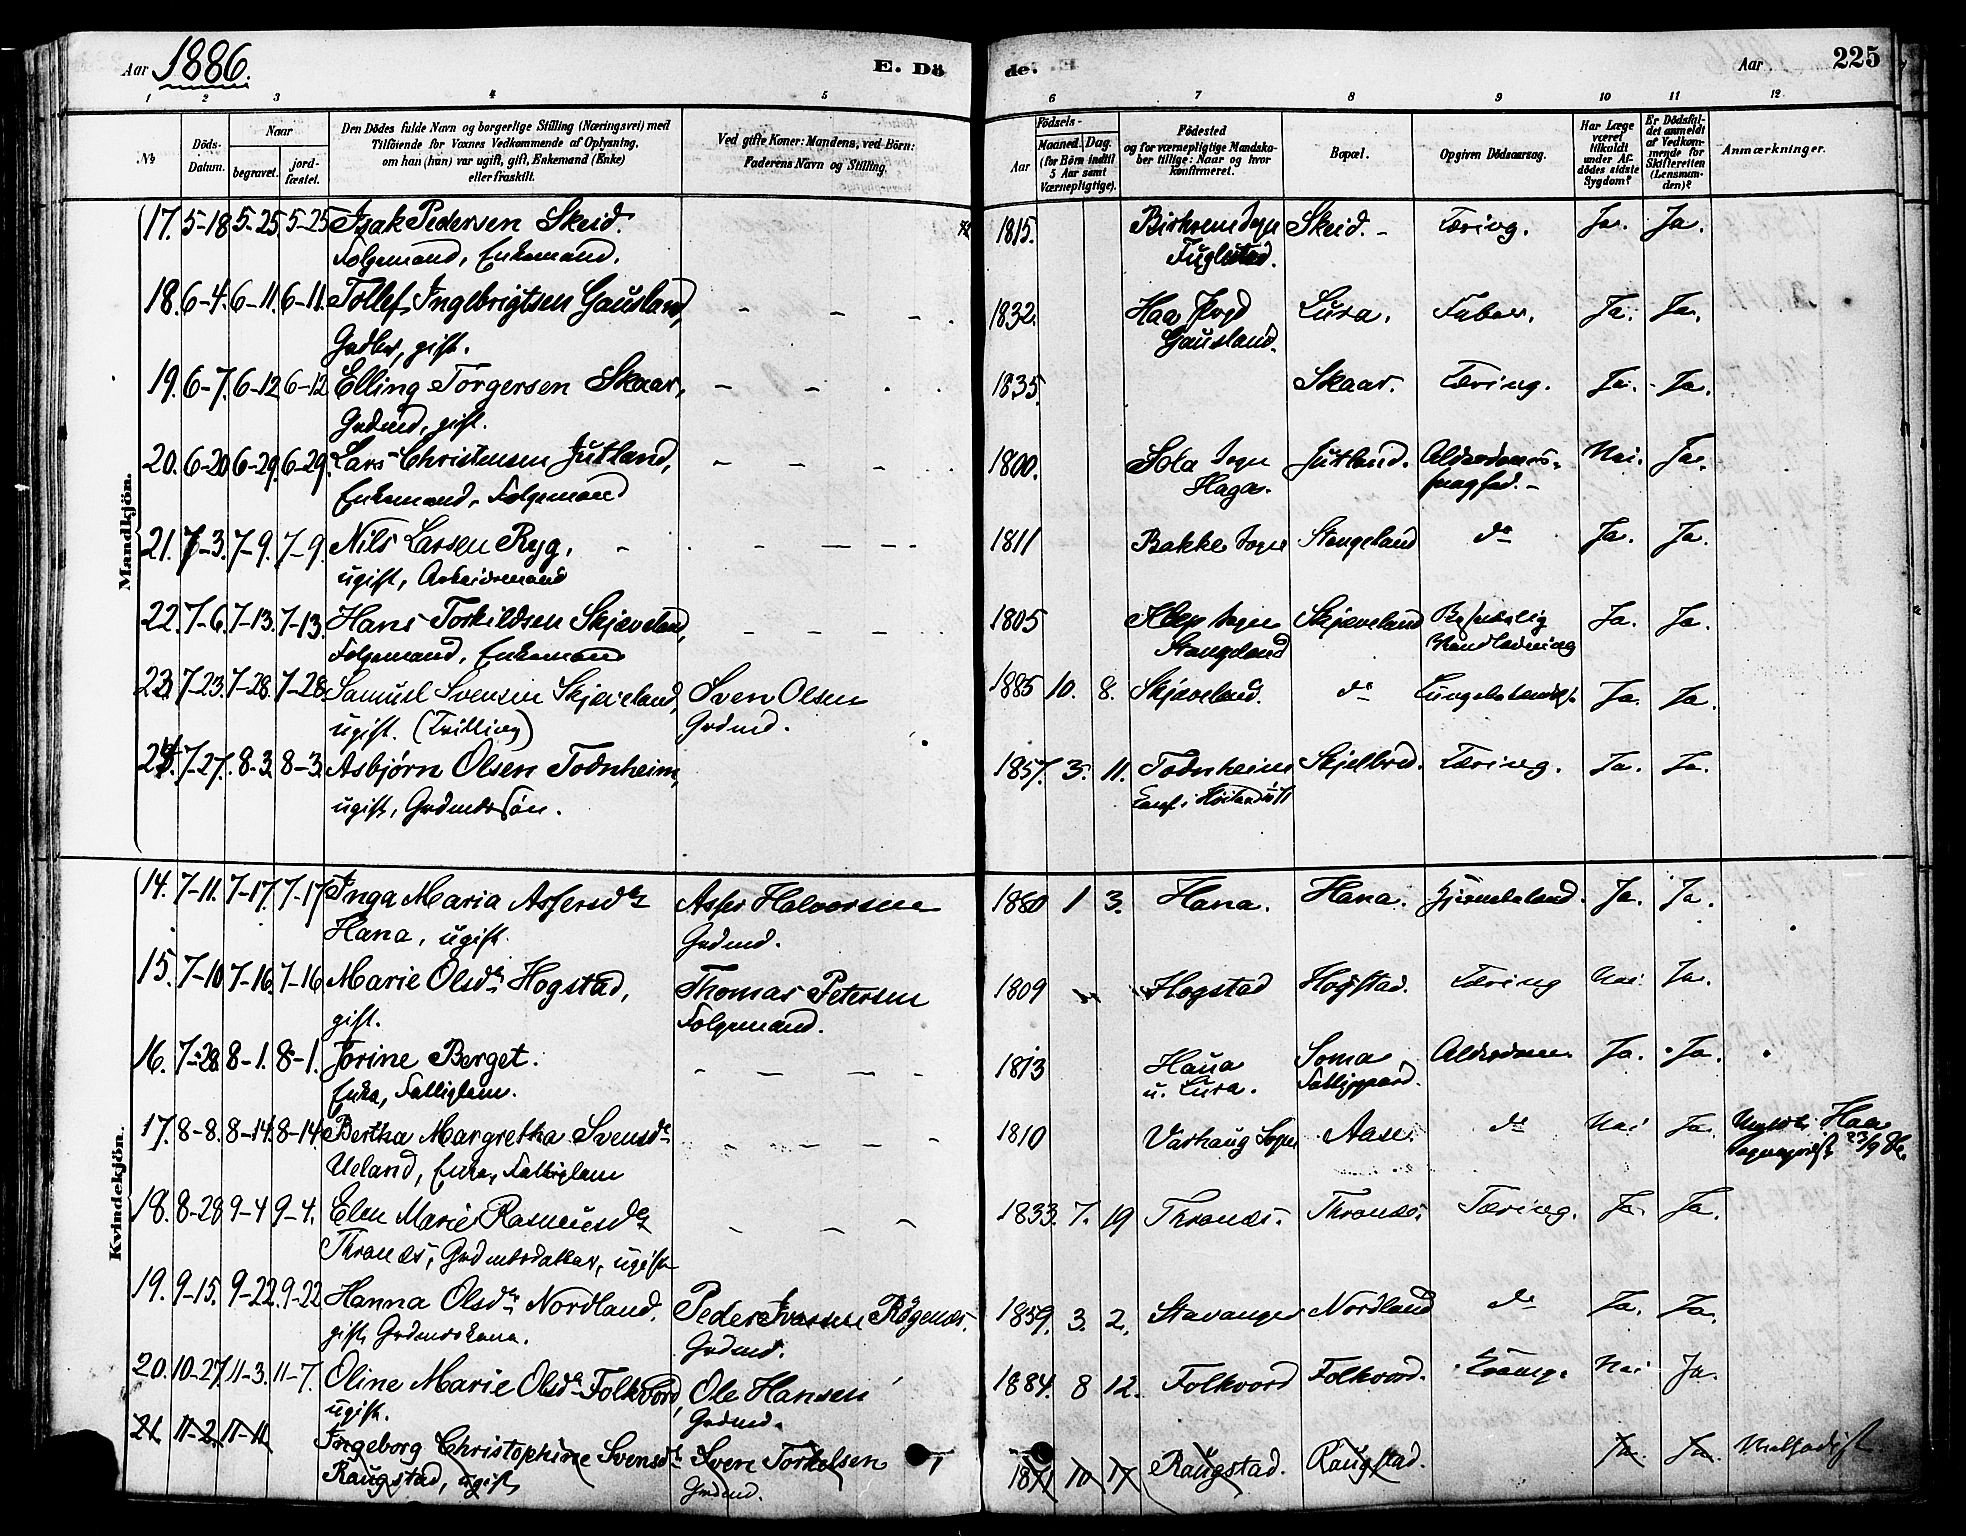 Aar 1886. E. Dö de. Aar 225
1 2 3 4 5 6 7 8 9 10 11 12
No
Döds-Datum.
Naar
begravet.
jord-fæstet.
Den Dödes fulde Navn og borgerlige Stilling (Næringsvei) med
Tilföiende for Voxnes Vedkommende af Oplysning,
om han (hun) var ugift, gift, Enkemand (Enke)
eller fraskilt.
Ved gifte Koner: Mandens, ved Börn:
Faderens Navn og Stilling.
Födsels-
Aar
Maaned. Dag.
(for Börn indtil
5 Aar samt
Værnepligtige).
Födested
og for værnepligtige Mandska-
ber tillige: Naar og hvor
konfirmeret.
Bopæl.
Opgiven Dödsaarsag.
Har Læge
været
tilkaldt
under Af-
dödes sidste
Sygdom?
Er Dödsfal-
det anmeldt
af Vedkom-
mende for
Skifteretten
(Lensman-
den)?
Anmærkninger.
Mandkjön.
17. 5-18 5-25 5-25 Isak Pedersen Skeid. 1815. Sogn Skeid. Tæring. Ja. Ja.
Folgemand, Enkemand. Fuglestad.
18. 6-4. 6-11. 6-11. Tollef Ingebrigtsen Gausland, 1832. Haa Lura. Feber. Ja. Ja.
gift. Gausland.
19. 6-7. 6-12 6-12 Elling Torgersen Skaar, 1835. Skaar. Tæring. Ja. Ja.
Grdmd, gift.
20. 6-20 6-29. 6-29. Lars Christensen Jutland, 1800. Sola Sogn Jutland. Alderdoms- Nei. Ja.
Enkemand, Folgemand Haga.
21. 7-3. 7-9. 7-9. Nils Larsen Ryg, 1811 Bakke Sogn Stangeland do Ja. Ja.
ugift, Arbeidsmand
22. 7-6. 7-13. 7-13. Hans Torkildsen Skjæveland, 1805 Klep Sogn Skjæveland Ja. Ja.
Folgemand, Enkemand Stangeland
23. 7-23. 7-28. 7-28. Samuel Svensen Skjæveland, Sven Olsen 1885 10. 8. Skjæveland. do Ja. Ja.
ugift. (Tvilling) Grdmd.
24. 7-27. 8-3. 8-3. Asbjørn Olsen Todnheim, 1857. 3. 11. Todnheim Tæring. Ja. Ja.
ugift, Grdmds Søn.
Kvindekjön.
14. 7-11. 7-17. 7-17 Inga Maria Hana. Hana. Ja. Ja.
Hana, ugift. Grdmd. 1 3.
15. 7-10 7-16. 7-16 Marie Olsdr Hogstad, Thomas Petersen 1809 Hogstad Hogstad. Tæring Nei. Ja.
gift. Folgemand.
16. 7-28. 8-1. 8-1. Jorine Berget. 1813 Hana Soma Alderdom Ja. Ja.
Enke, Fattiglem. u. Lura.
17. 8-8. 8-14. 8-14 Bertha Margretha Svensdr 1810 Varhaug Sogn Aase. do Nei Ja. Haa
Ueland, Enke, Fattiglem
18. 8-28 9-4 9-4. Elen Marie Rasmusdr 1833. 7. 19 Thronæs. Thronæs. Tæring. Ja. Ja.
Thronæs, Grdmdsdatter, ugift
19. 9-15. 9-22. 9-22 Hanna Olsdr Nordland. Peder 1859. 3. 2. Stavanger Nordland do Ja. Ja.
gift, Grdmds kone. Grdmd.
20. 10-27. 11-3. 11-7. Oline Marie Olsdr Folkvord, Ole Hansen 1884. 8 12. Folkvord Folkvord. Krampe Nei Ja.
ugift. Grdmd.
21. 11-2. 11-11 Ingeborg Christophine Svensdr Sven Torkelsen 1871 10 17 Raugstad. Raugstad. Ja. Ja.
Raugstad, ugift Grdmd.